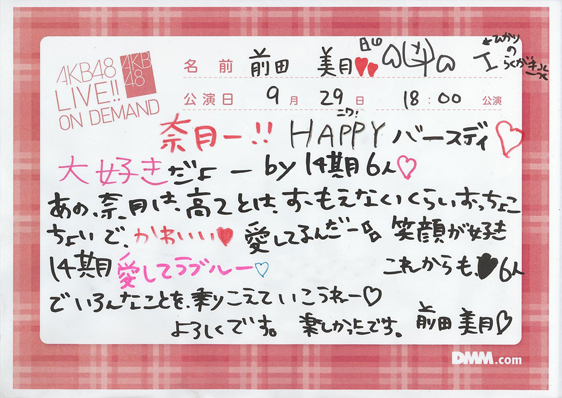 AKB48
LIVE!!
ON DEMAND
AKB
48
名前 前田 美月
←ひかり
の
らくがき
公演日 9月 29日 18:00 公演
奈月ー!! HAPPY バースディ♡
大好きだよー by 14期6人♡
あの、奈月は、高2とは、すーもえないくらいおっちょこ
ちょいで、かわいい♥ 愛してるんだー 笑顔が好き
14期愛してラブルー♡ これからも、6人
でいろんなことを、乗りこえていこうねー♡
よろしくです。 楽しかったです。 前田 美月♡
DMM.com